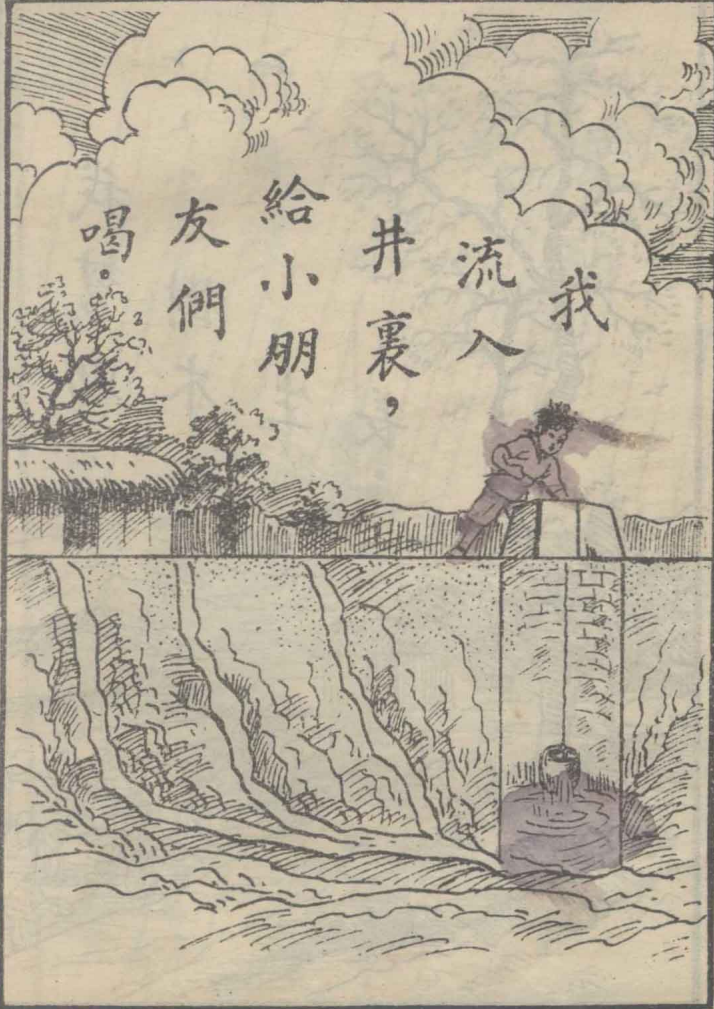 我
流入
井裏，
給小朋
友們
喝。